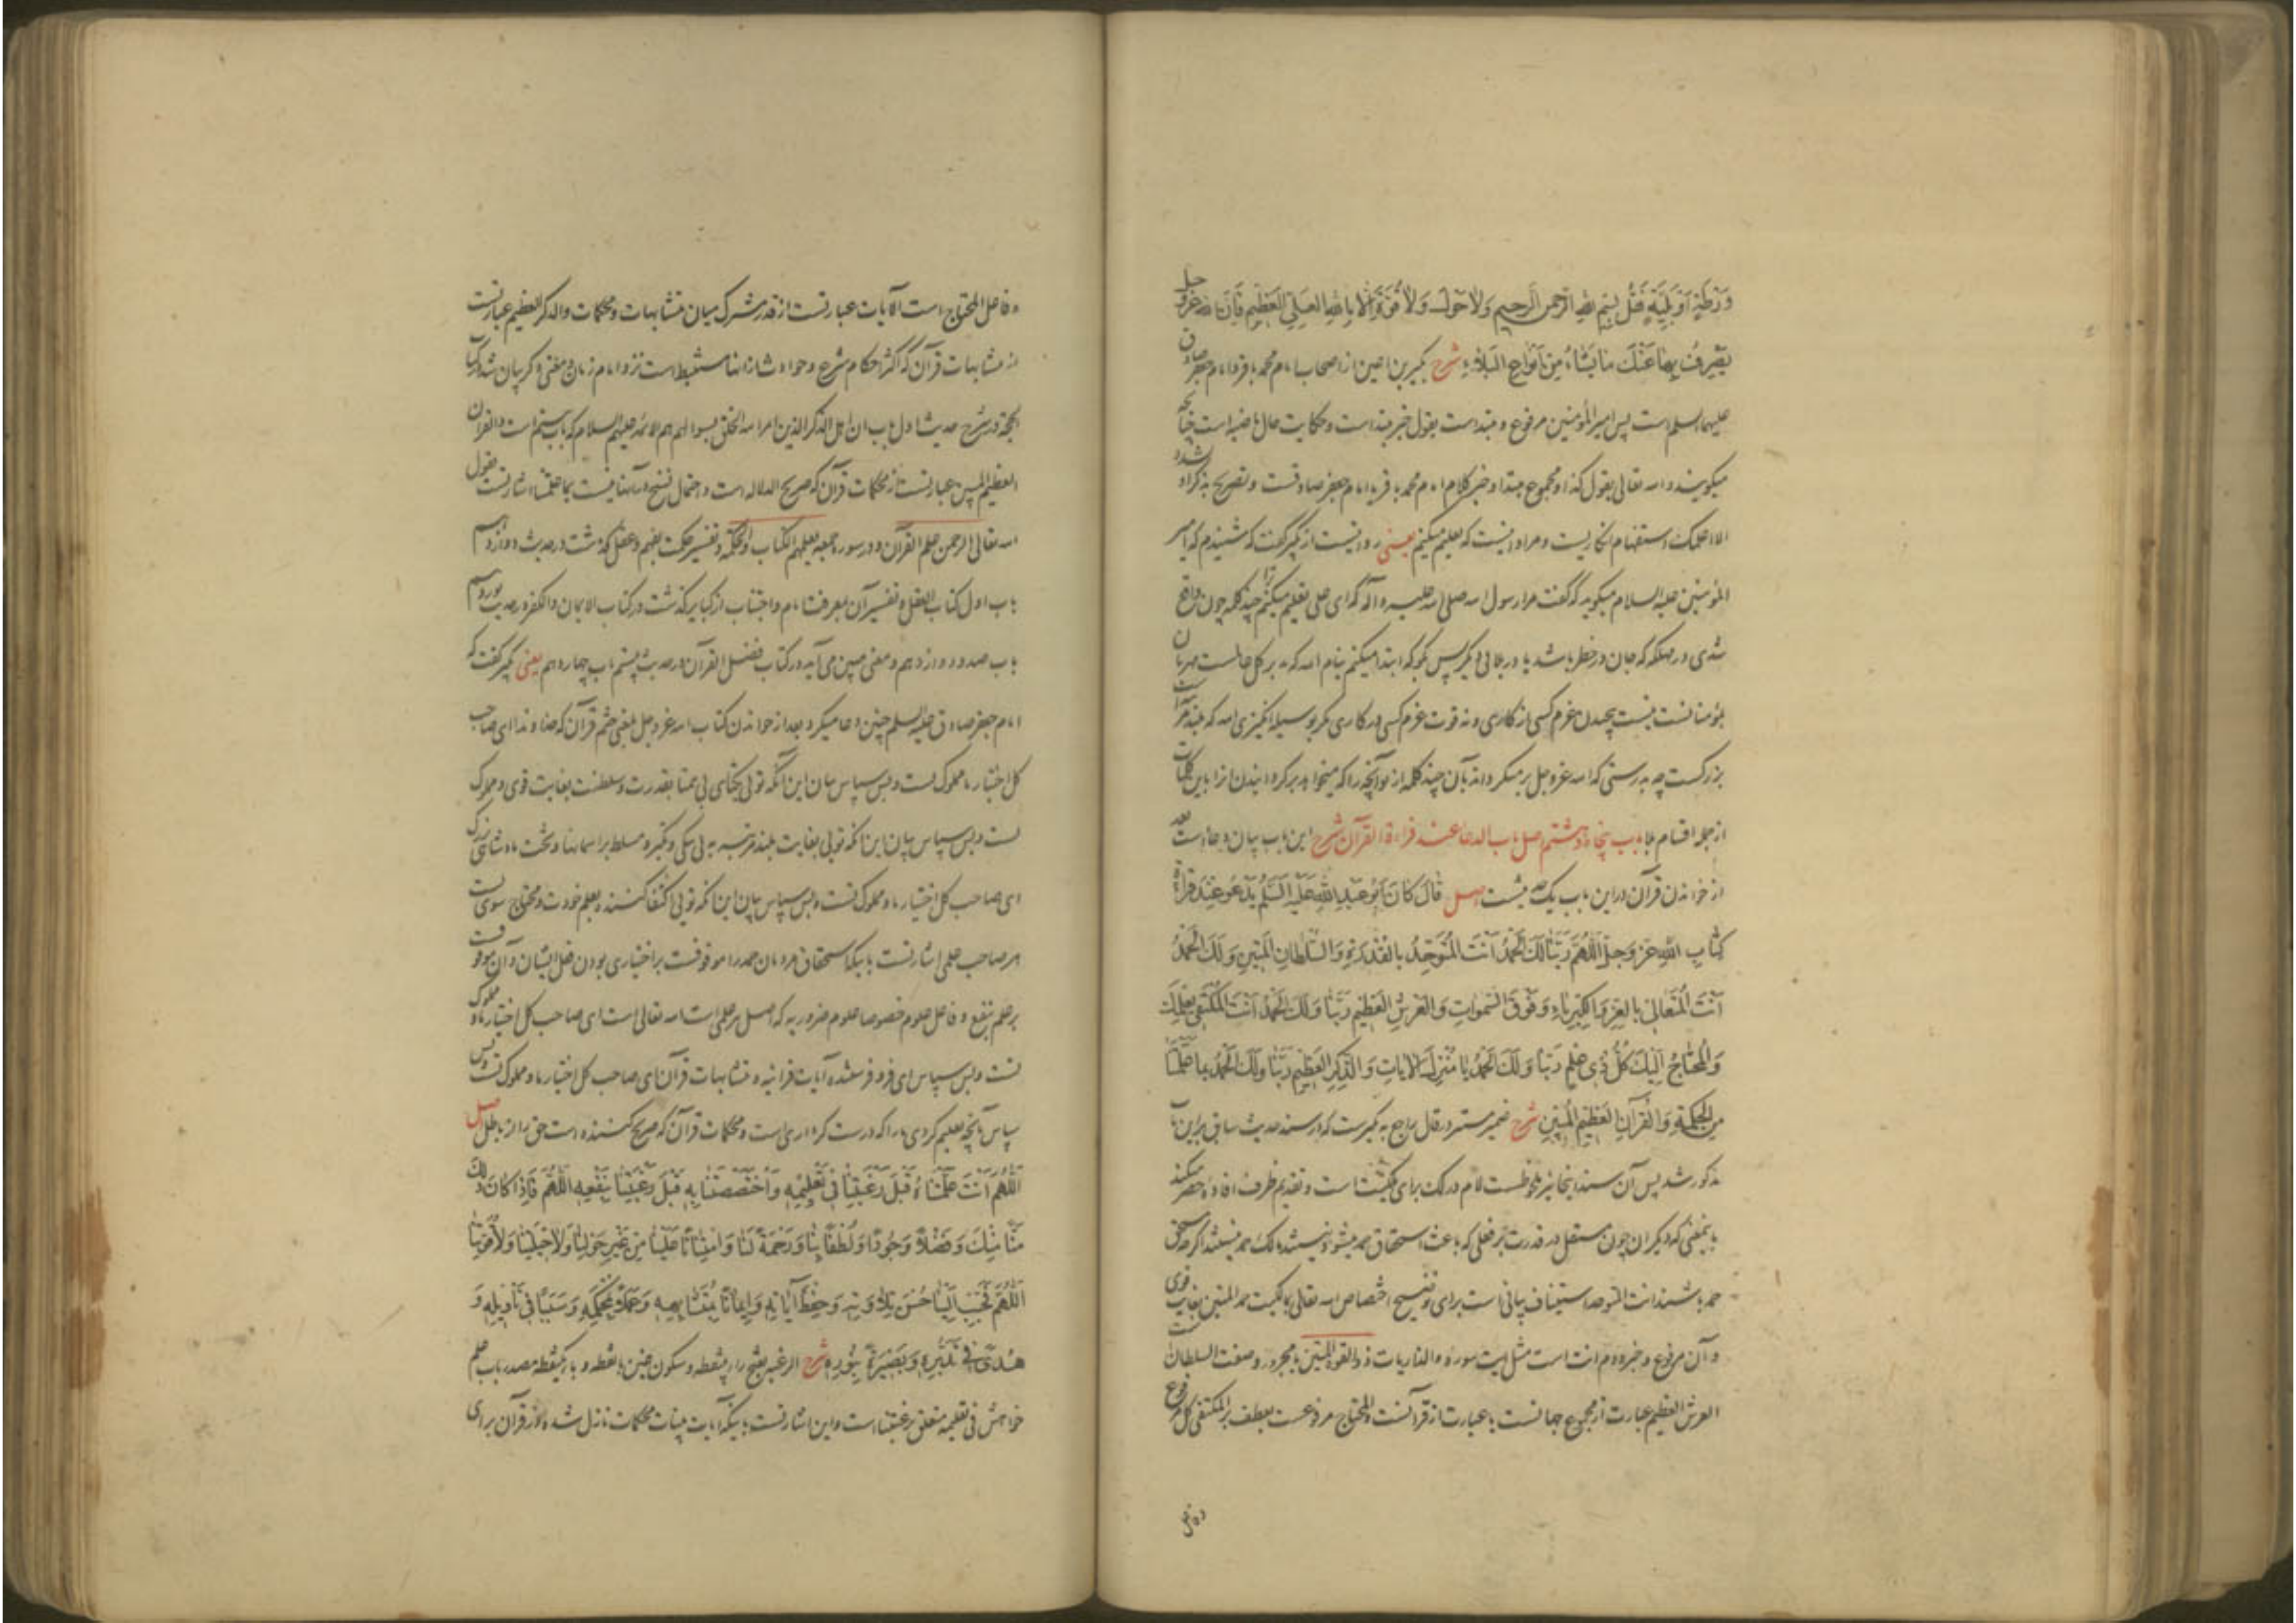 وَرْطَةٍ اَوْ بَلِيَّةٍ فَقُلْ بِسْمِ اللهِ الرَّحْمنِ الرَّحِيمِ وَلاٰ حَوْلَ وَلاٰ قُوَّةَ اِلاّٰ بِاللهِ العَلِيِّ العَظِيمِ فَاِنَّ اللهَ عَزَّ وَ جل
يَصْرِفُ بِهٰا عَنْكَ مٰا يَشٰاءُ مِنْ اَنْوٰاعِ البَلاٰءِ شرح بن اعين از اصحاب امام محمد باقر و امام جعفر صادق
عليهما السلم است پس امير المؤمنين مرفوع و مبتداست يقول خبر مبتداست و حكايت حال ماضيه است چنانچه
ميگويند و الله تعالى يقول كذا و مجموع مبتدا و خبر كلام امام محمد باقر يا امام جعفر صادقست و تصريح بذكر او
الا اعلمك استفهام انكاريست و مراد اينست كه تعليم ميكنم يعنى روايتست از گفت كه شنيدم كه امير
المؤمنين عليه السلام ميگويد كه گفت مرا رسول الله صلى الله عليه و آله كه اى على تعليم ميكنم ترا چند كلمه چون واقع
شدى در مهلكه كه جان در خطر باشد يا در بلائى ديگر پس بگو كه ابتدا ميكنم بنام الله كه
كسى از كارى و نه قوت عزم كسى در كارى مگر بوسيله الله كه
بزرگست چه بدرستى كه الله عز و جل بر ميگرداند بآن چند كلمه از تو آنچه را كه ميخواهد برگردانيدن آنرا باين كلمات
از جمله اقسام بلا باب پنجاه و هشتم اصل باب الدعاء عند قراءة القرآن شرح اين باب بيان دعاست بعد
از خواندن قرآن در اين باب يك حديثست اصل قٰالَ كٰانَ اَبُو عَبْدِ اللهِ عَلَيْهِ السَّلٰمُ يَدْعُو عِنْدَ قِراءَةِ
كِتٰابِ اللهِ عَزَّ وَجَلَّ اَللّٰهُمَّ رَبَّنٰا لَكَ الْحَمْدُ اَنْتَ الْمُتَوَحِّدُ بِالْقُدْرَةِ وَالسُّلْطٰانِ الْمَتِينِ وَلَكَ الْحَمْدُ
اَنْتَ الْمُتَعٰالِى بِالْعِزِّ وَالْكِبْرِيٰاءِ وَفَوْقَ السَّمٰوٰاتِ وَالْعَرْشِ الْعَظِيمِ رَبَّنٰا وَلَكَ الْحَمْدُ اَنْتَ الْمُكْتَفِى بِعِلْمِكَ
وَالْمُحْتٰاجُ اِلَيْكَ كُلُّ ذِى عِلْمٍ رَبَّنٰا وَلَكَ الْحَمْدُ يٰا مُنْزِلَ الْاٰيٰاتِ وَالذِّكْرِ الْعَظِيمِ رَبَّنٰا وَلَكَ الْحَمْدُ بِمٰا عَلَّمْتَنٰا
مِنَ الْحِكْمَةِ وَالْقُرْآنِ الْعَظِيمِ الْمُبِينِ شرح ضمير مستتر در قال راجع به كه در سند حديث سابق برين باب
مذكور شد پس آن سند اينجا نيز ملحوظست لام در لك براى ملكيتست و تقديم ظرف افاده حصر ميكند
باينمعنى كه ديگران چون مستقل در قدرت بر فعلى كه باعث استحقاق حمد ميشود نيستند مالك حمد نيستند اگرچه مستحق
حمد باشند انت المتوحد استيناف بيانى است براى توضيح اختصاص الله تعالى بملكيت حمد المتين بغايت قوى
و آن مرفوع و خبر دوم انت است مثل آيت سوره و الذاريات ذو القوة المتين يا مجرور و صفت السلطانست
العرش العظيم عبارت از مجموع جهانست يا عبارت از قرآنست و المحتاج مرفوعست بعطف بر المكتفى كل مرفوع
و فاعل
و فاعل المحتاج است الآيات عبارتست از قدر مشترك ميان متشابهات و محكمات و الذكر العظيم عبارتست
از متشابهات قرآن كه اكثر احكام شرع و حوادث از آنها مستنبط است نزد امام زمان بمعنى ديگر بيان شد در كتاب
الحجة در شرح حديث اول باب ان اهل الذكر الذين امر الله الخلق بسؤالهم هم الائمة عليهم السلام كه باب بيستم است و القرآن
العظيم المبين عبارتست از محكمات قرآن كه صريح الدلاله است و احتمال نسخ در آنها نيست بما علمتنا اشارتست بقول
الله تعالى الرحمن علم القرآن و در سوره جمعه يعلمهم الكتاب و الحكمة و تفسير حكمت بفهم و عقل گذشت در حديث دوازدهم
باب اول كتاب العقل و تفسير آن بمعرفت امام و اجتناب از كباير گذشت در كتاب الايمان و الكفر در حديث
باب صد و دوازدهم و معنى مبين مى آيد در كتاب فضل القرآن در حديث بيستم باب چهاردهم يعنى گفت كه
امام جعفر صادق عليه السلم چنين دعا ميكرد بعد از خواندن كتاب الله عز و جل بمعنى ختم قرآن كه خداوندا اى صاحب
كل اختيار ما مملوك تست و بس سپاس بيان اين آنكه توئى يكتاى بى همتا بقدرت و سلطنت بغايت قوى و مملوك
تست و بس سپاس بيان اين آنكه توئى بغايت بلند مرتبه به بى ننگى و تكبر و مسلط بر آسمانها و تخت پادشاهى بزرگ
اى صاحب كل اختيار ما و مملوك تست و بس سپاس بيان اين آنكه توئى اكتفا كننده بعلم خودت و محتاج سوى تست
هر صاحب علمى اشارتست باينكه استحقاق مردمان حمد را موقوفست بر اختيارى بودن فعل ايشان و آن موقوفست
بر علم بنفع و فاعل علوم خصوصا علوم ضروريه كه اصل هر علمى است الله تعالى است اى صاحب كل اختيار ما و مملوك
تست و بس سپاس اى فرو فرستنده آيات قرآنيه و متشابهات قرآن اى صاحب كل اختيار ما و مملوك تست و بس
سپاس بآنچه تعليم كردى ما را كه درست كردارى است و محكمات قرآن كه صريح كننده است حق را از باطل اصل
اَللّٰهُمَّ اَنْتَ عَلَّمْتَنٰاهُ قَبْلَ رَغْبَتِنٰا فِى تَعْلِيمِهِ وَاخْتَصَصْتَنٰا بِهِ قَبْلَ رَغْبَتِنٰا بِنَفْعِهِ اَللّٰهُمَّ فَاِذٰا كٰانَ ذٰلِكَ
مَنّاً مِنْكَ وَفَضْلاً وَجُوداً وَلُطْفاً بِنٰا وَرَحْمَةً لَنٰا وَامْتِنٰاناً عَلَيْنٰا مِنْ غَيْرِ حَوْلِنٰا وَلاٰ حِيلَتِنٰا وَلاٰ قُوَّتِنٰا
اَللّٰهُمَّ فَحَبِّبْ اِلَيْنٰا حُسْنَ تِلاٰوَتِهِ وَحِفْظَ آيٰاتِهِ وَاِيمٰاناً بِمُتَشٰابِهِهِ وَعَمَلاً بِمُحْكَمِهِ وَسَبَباً فِى تَأْوِيلِهِ وَ
هُدًى فِى تَدَبُّرِهِ وَبَصِيرَةً بِنُورِهِ شرح الرغبة بفتح راء بينقطه و سكون غين بانقطه و باء يكنقطه مصدر باب علم
خواهش فى تعليمه متعلق برغبتنا است و اين اشارتست باينكه آيات بينات محكمات نازل شده در قرآن براى